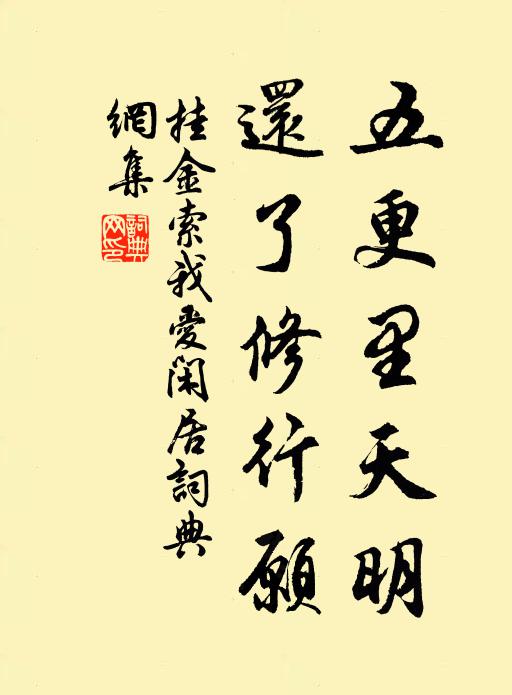 五更里天明
還了修行願
挂金索我愛閑居詞典
網集
詞典
網印